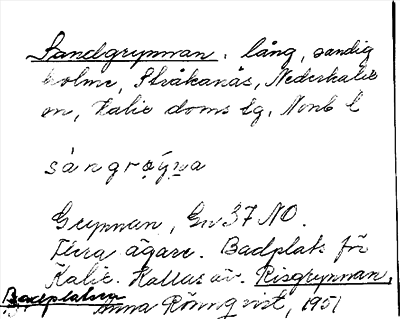 Sandgrynnan. lång, sandig
holme, Stråkanäs, Nederkalix
sn, Kalix doms lg, Nonb l
sàngrøýna
Grynnan, Gn 37 NO.
Flera ägare. Badplats för
Kalix. Kallas äv. Risgrynnan,
Badplatsen
Anna Rönnqvist, 1951